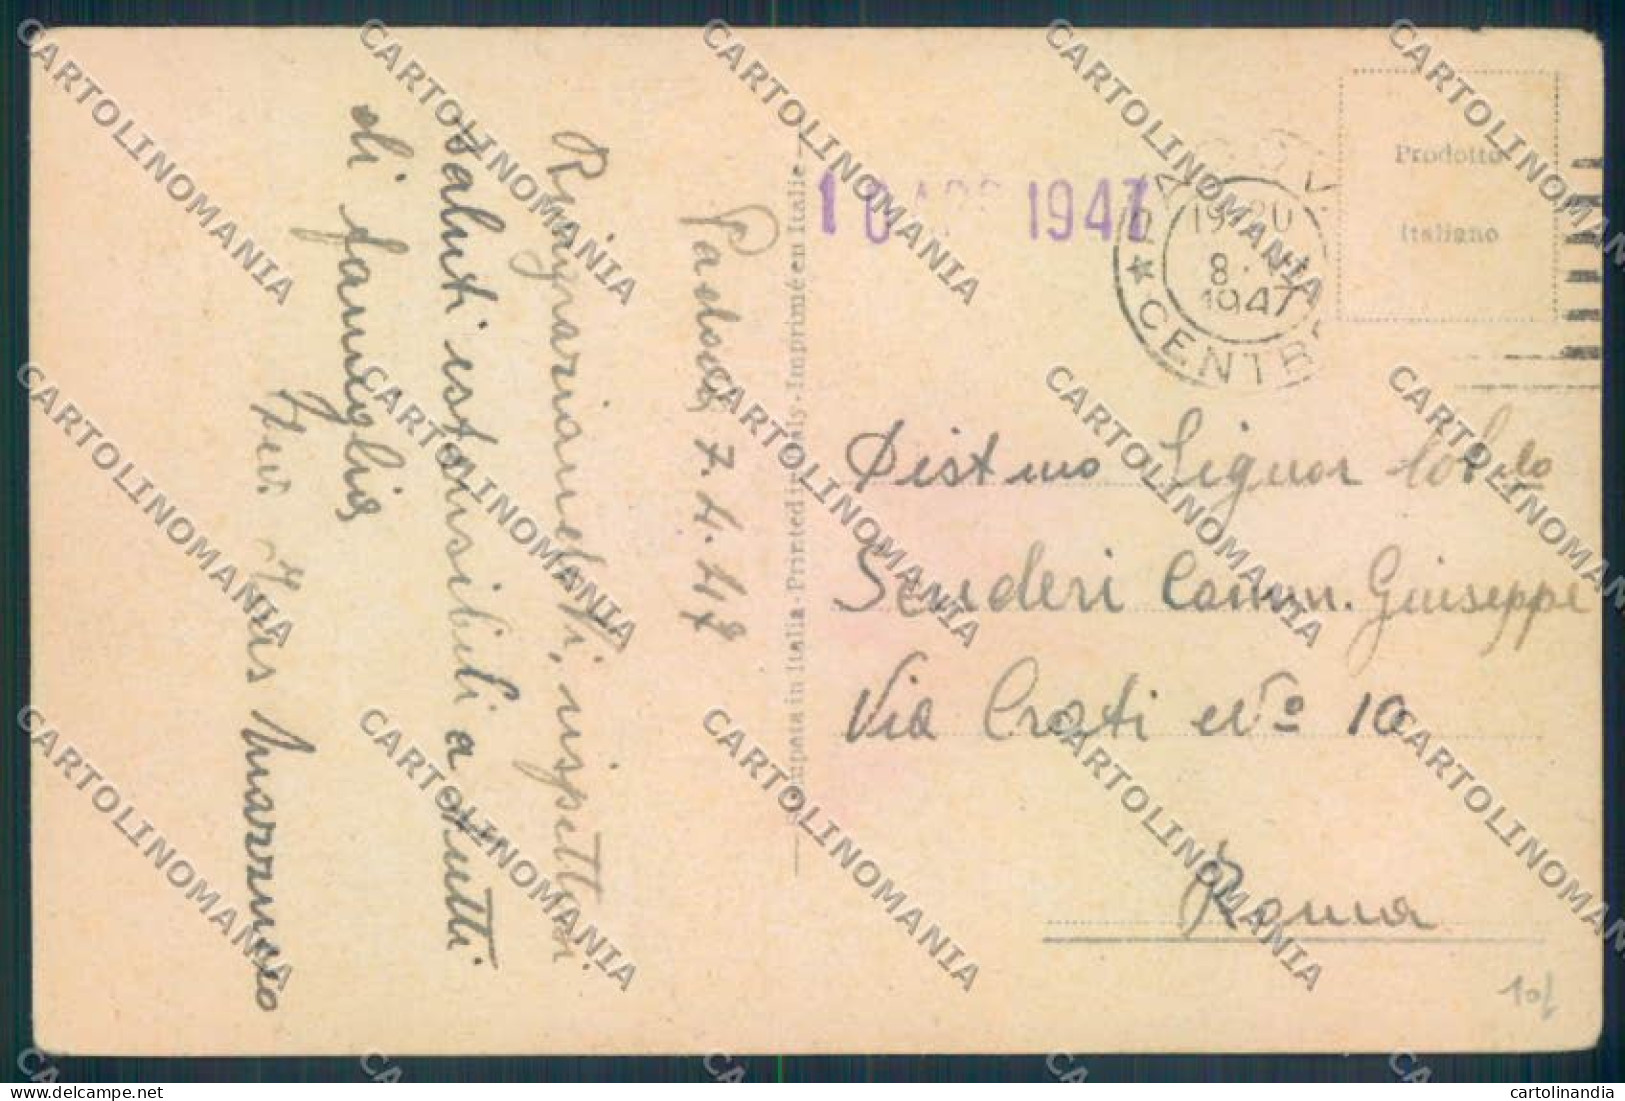 Padova, 7.4.47
Ringraziandoti, rispettosi
saluti estensibili a tutti
di famiglia
Stampata in Italia - Printed in Italy - Imprimé en Italie
10 APR 1947
PADOVA
19-20
8. IV
1947
★ CENTR
Prodotto
Italiano
Dist mo Signor
Scuderi Comm. Giuseppe
Via Crati No 10
Roma
CARTOLINOMANIA
cartolinandia